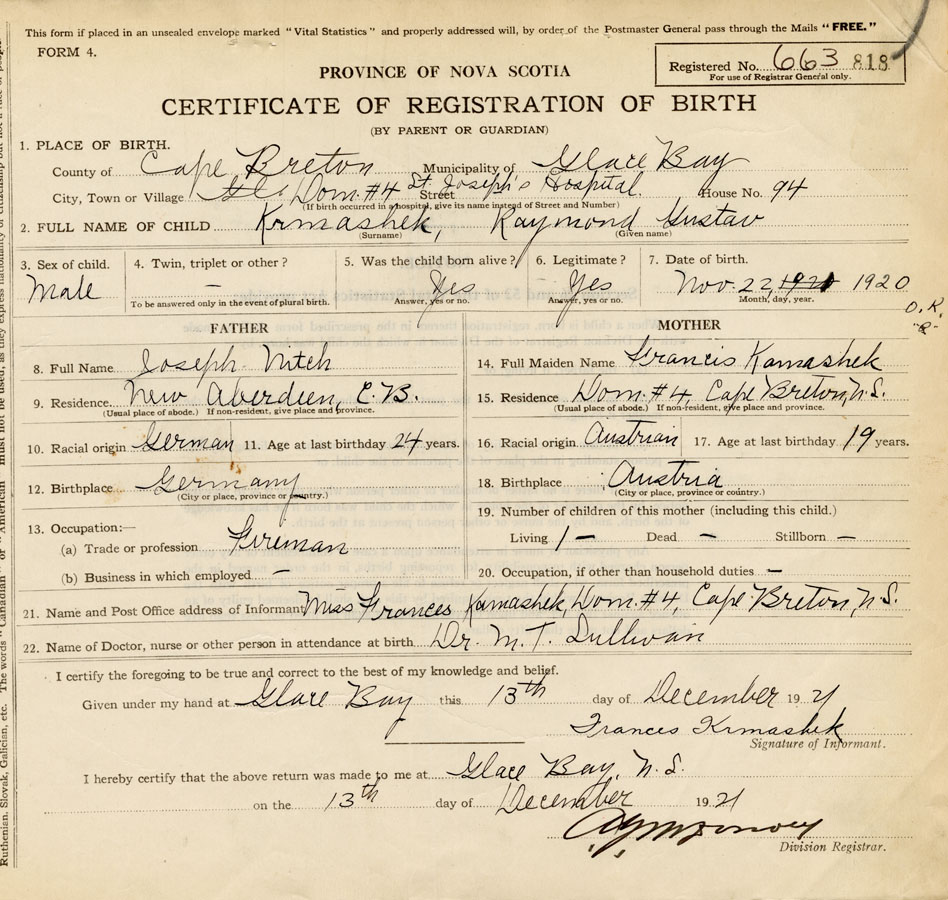 This form if placed in an unsealed envelope marked "Vital Statistics" and properly addressed will, by order of the Postmaster General pass through the Mails "FREE."
FORM 4.
Registered No. 663 818
For use of Registrar General only.
PROVINCE OF NOVA SCOTIA
CERTIFICATE OF REGISTRATION OF BIRTH
(BY PARENT OR GUARDIAN)
1. PLACE OF BIRTH.
County of Cape Breton Municipality of Glace Bay
City, Town or Village Dom. #4 Street St. Joseph's Hospital House No. 94
(If birth occurred in a hospital, give its name instead of Street and Number)
2. FULL NAME OF CHILD Krmashek, Raymond Gustav
(Surname) (Given name)
3. Sex of child. 4. Twin, triplet or other? 5. Was the child born alive? 6. Legitimate? 7. Date of birth.
Male — Yes Yes Nov. 22, 1921 1920
To be answered only in the event of plural birth. Answer, yes or no. Answer, yes or no. Month, day, year.
O.K.
"R"
FATHER MOTHER
8. Full Name Joseph Nitch 14. Full Maiden Name Francis Kamashek
9. Residence New Aberdeen, C.B. 15. Residence Dom. #4, Cape Breton, N.S.
(Usual place of abode.) If non-resident, give place and province. (Usual place of abode.) If non-resident, give place and province.
10. Racial origin German 11. Age at last birthday 24 years. 16. Racial origin Austrian 17. Age at last birthday 19 years.
12. Birthplace Germany 18. Birthplace Austria
(City or place, province or country.) (City or place, province or country.)
13. Occupation:— 19. Number of children of this mother (including this child.)
(a) Trade or profession Fireman Living 1 — Dead — Stillborn —
(b) Business in which employed — 20. Occupation, if other than household duties —
21. Name and Post Office address of Informant Miss Frances Kamashek, Dom. #4, Cape Breton, N.S.
22. Name of Doctor, nurse or other person in attendance at birth Dr. M. T. Sullivan
I certify the foregoing to be true and correct to the best of my knowledge and belief.
Given under my hand at Glace Bay this 13th day of December 1921
Frances Krmashek
Signature of Informant.
I hereby certify that the above return was made to me at Glace Bay, N.S.
on the 13th day of December 1921
Division Registrar.
Ruthenian, Slovak, Galician, etc. The words "Canadian" or "American" must not be used, as they express nationality or citizenship but not a race of people.